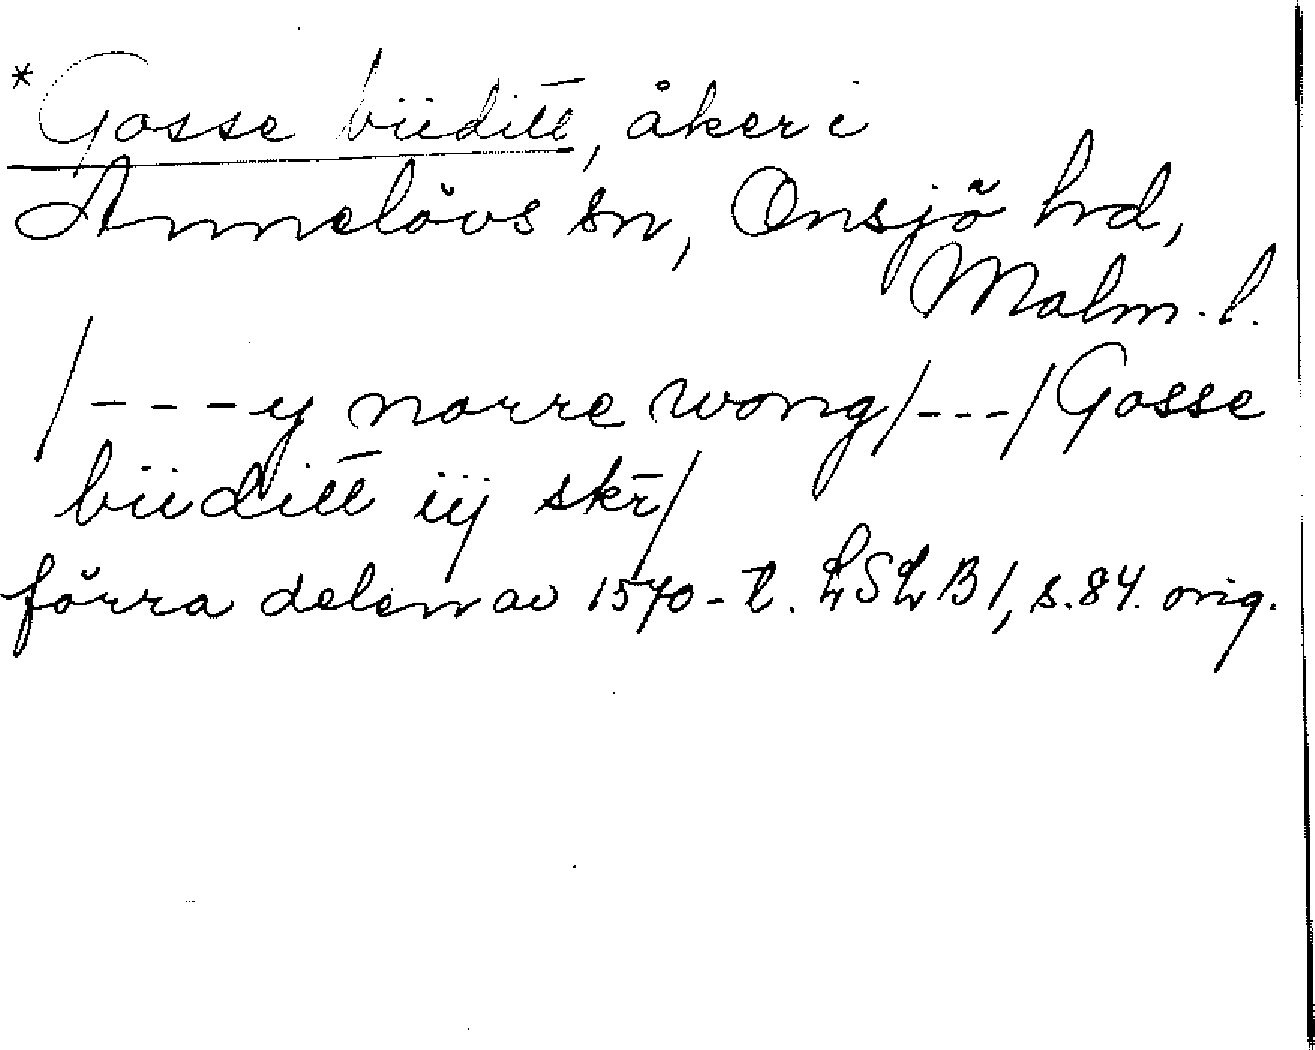 *Gosse biiditt, åker i
Annelövs sn, Onsjö hrd,
Malm. l.
/---y norre wong/---/Gosse
biiditt iij skr/
förra delen av 1570-t. LSLB1, s.84. orig.